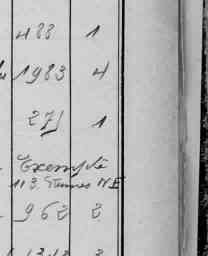 488 1
1983 4
271 1
Exempté
113. Tunnes N E
962 2